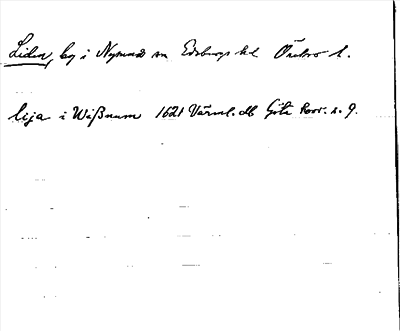 Liden, by i Nysund sn Edsbergs hd Örebro l.
lija i Wißnum 1621 Värml. db Göta Rosr. s. 9.